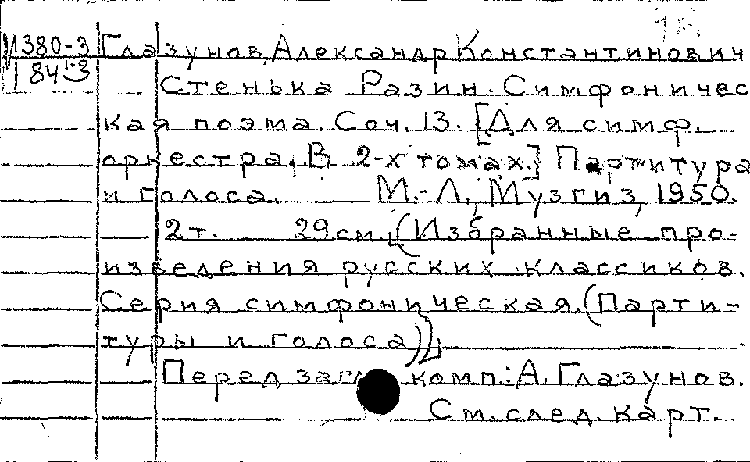 М380-3 Глазунов, Александр Константинович
84-3 Стенька Разин. Симфоничес
кая поэма. Соч. 13. [Для симф.
оркестра. В 2-х томах.] Партитура
и голоса. М.-Л., Музгиз, 1950.
2 т. 29 см. (Избранные про-
изведения русских классиков.
Серия симфоническая (Парти-
туры и голоса)).
Перед загл. комп.: А. Глазунов.
См. след. карт.